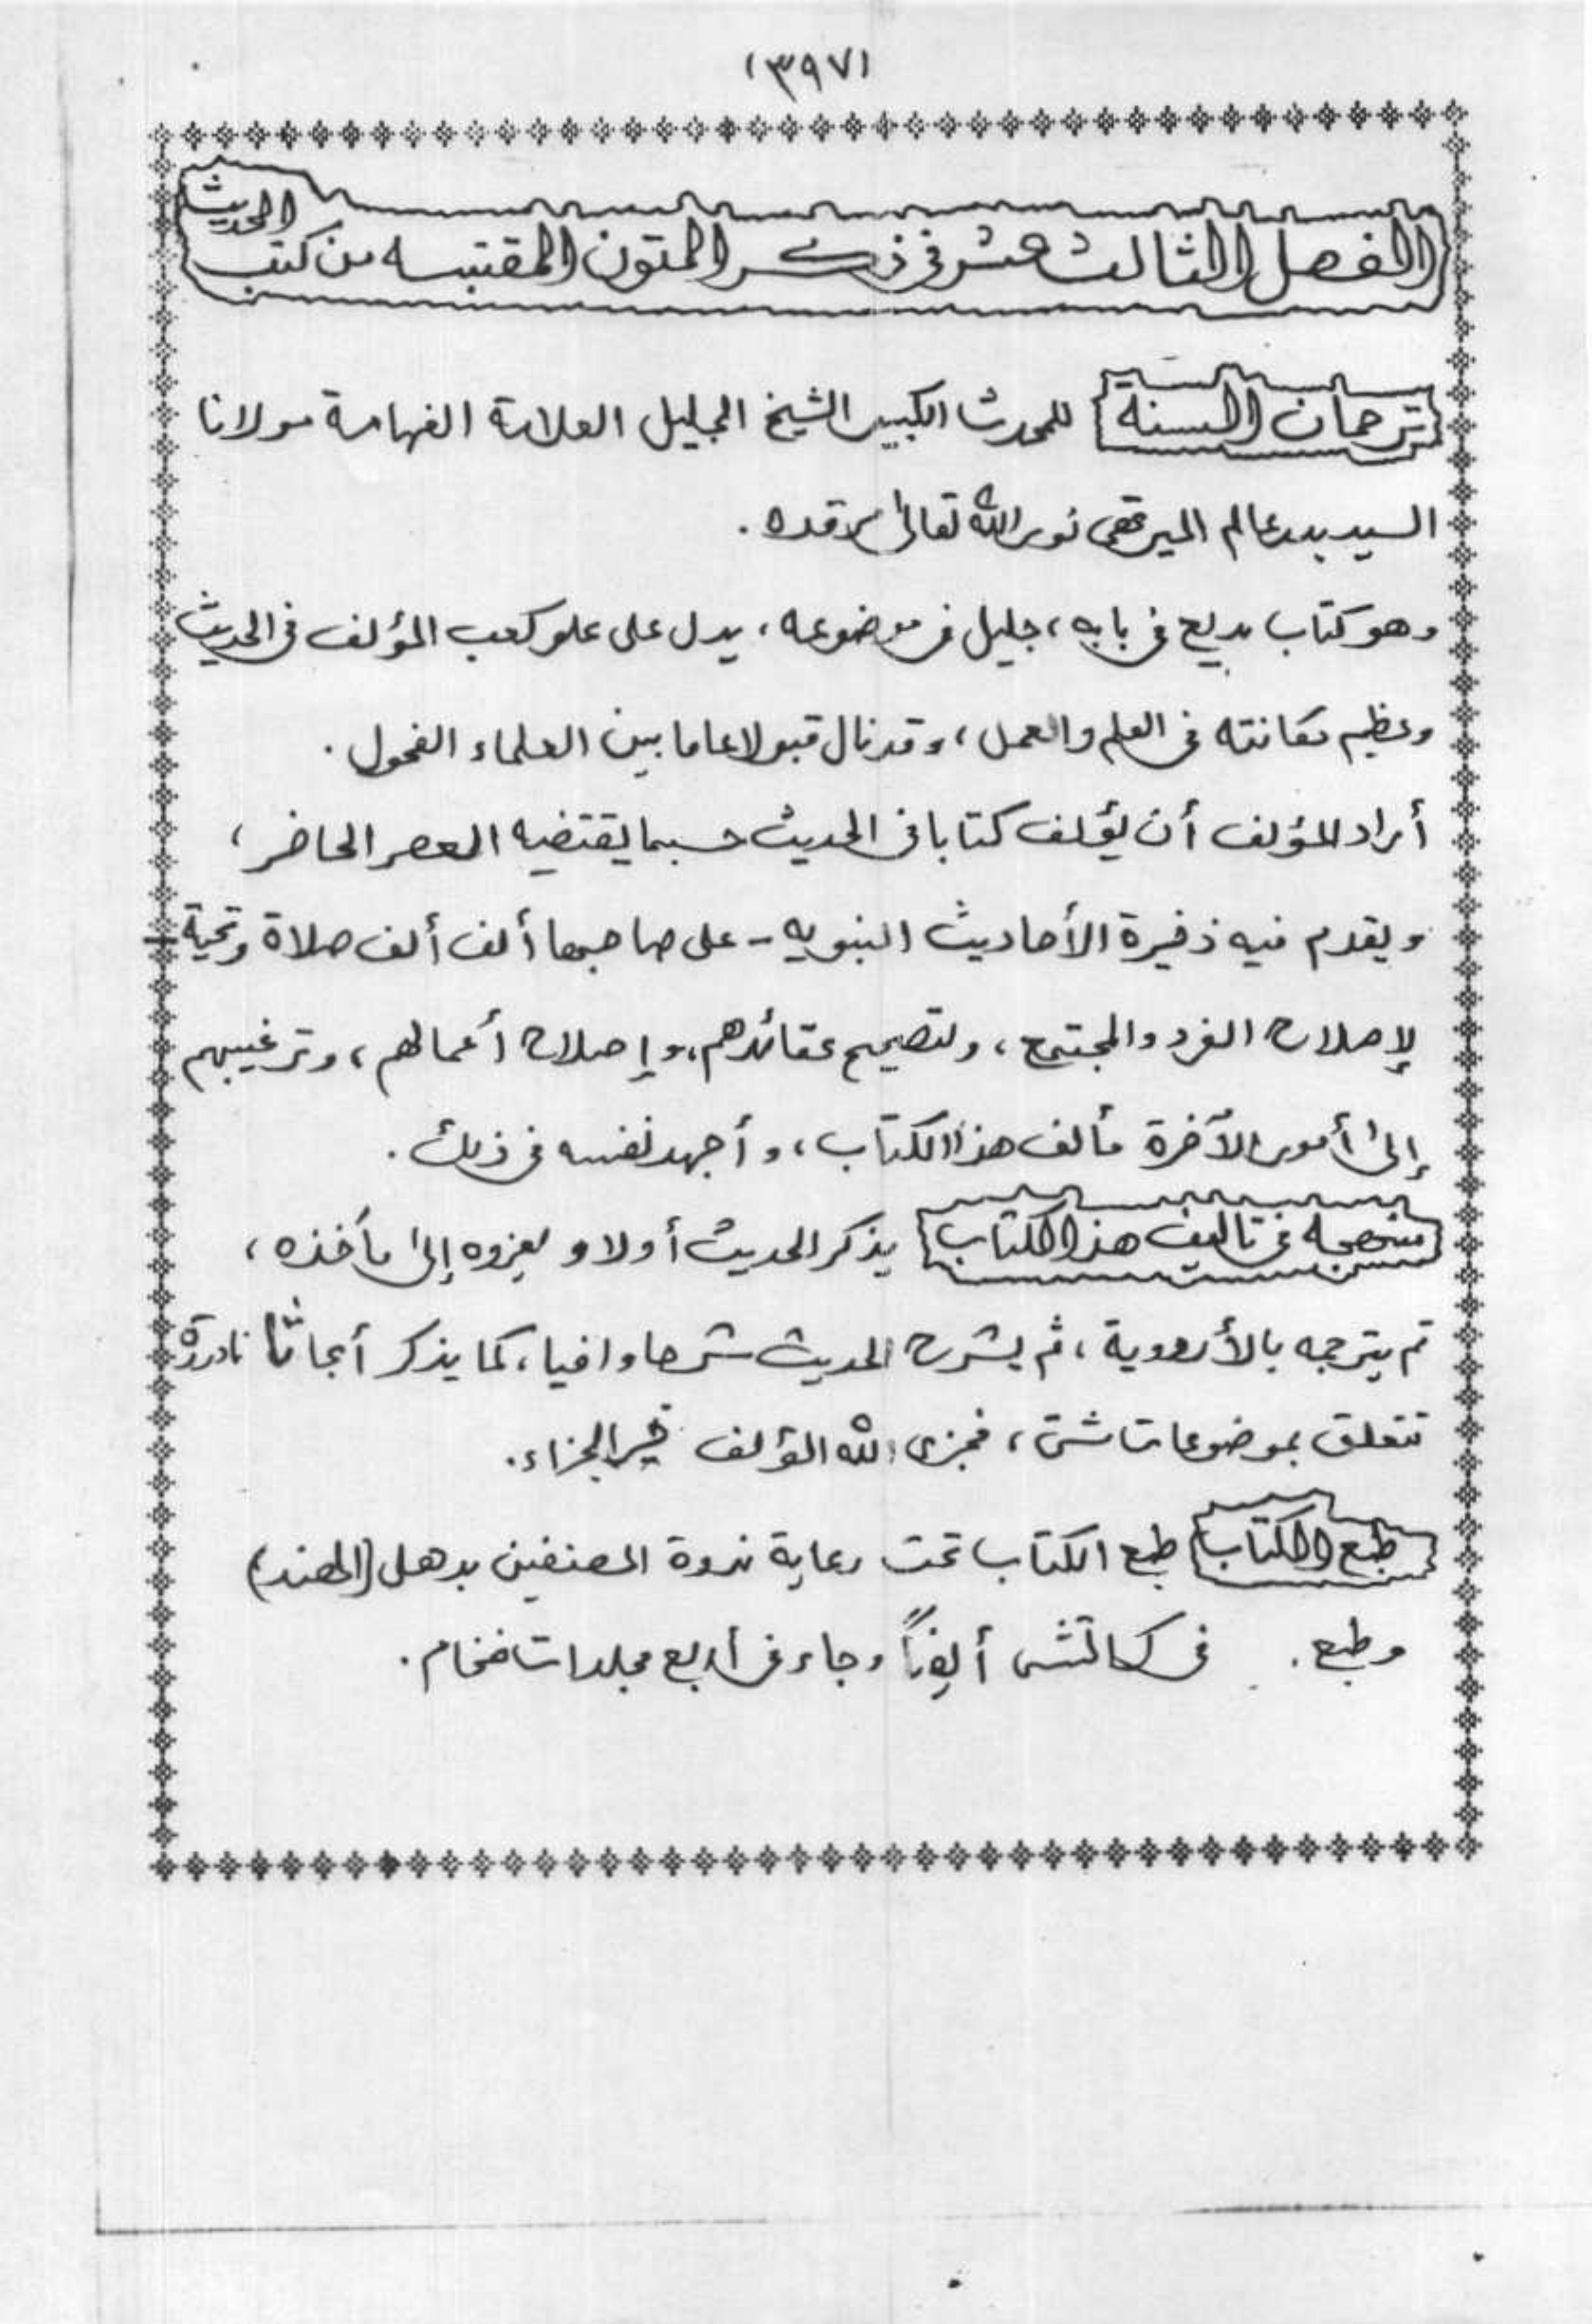 (٣٩٧)
الفصل الثالث عشر في ذكر المتون المقتبسه من كتب الحديث
ترجمان السنة للمحدث الكبير الشيخ الجليل العلامة الفهامة مولانا
السيد بدر عالم الميرتهي نور الله تعالى مرقده .
وهو كتاب بديع في بابه ، جليل في موضوعه ، يدل على علو كعب المؤلف في الحديث
وعظيم مكانته في العلم والعمل ، وقد نال قبولا عاما بين العلماء الفحول .
أراد المؤلف أن يؤلف كتابا في الحديث حسبما يقتضيه العصر الحاضر ،
ويقدم فيه ذخيرة الأحاديث النبويه - على صاحبها ألف ألف صلاة وتحية -
لإصلاح الفرد والمجتمع ، ولتصحيح عقائدهم ، وإصلاح أعمالهم ، وترغيبهم
إلى أمور الآخرة فألف هذا الكتاب ، وأجهد نفسه في ذلك .
منهجه في تاليف هذا الكتاب يذكر الحديث أولا و يعزوه إلى مآخذه ،
ثم يترجمه بالأردوية ، ثم يشرح الحديث شرحا وافيا ، كما يذكر أبحاثا نادرة
تتعلق بموضوعات شتى ، فجزى الله المؤلف خير الجزاء .
طبع الكتاب طبع الكتاب تحت رعاية ندوة المصنفين بدهلي (الهند)
وطبع . في كراتشي أيضاً وجاء في أربع مجلدات ضخام .